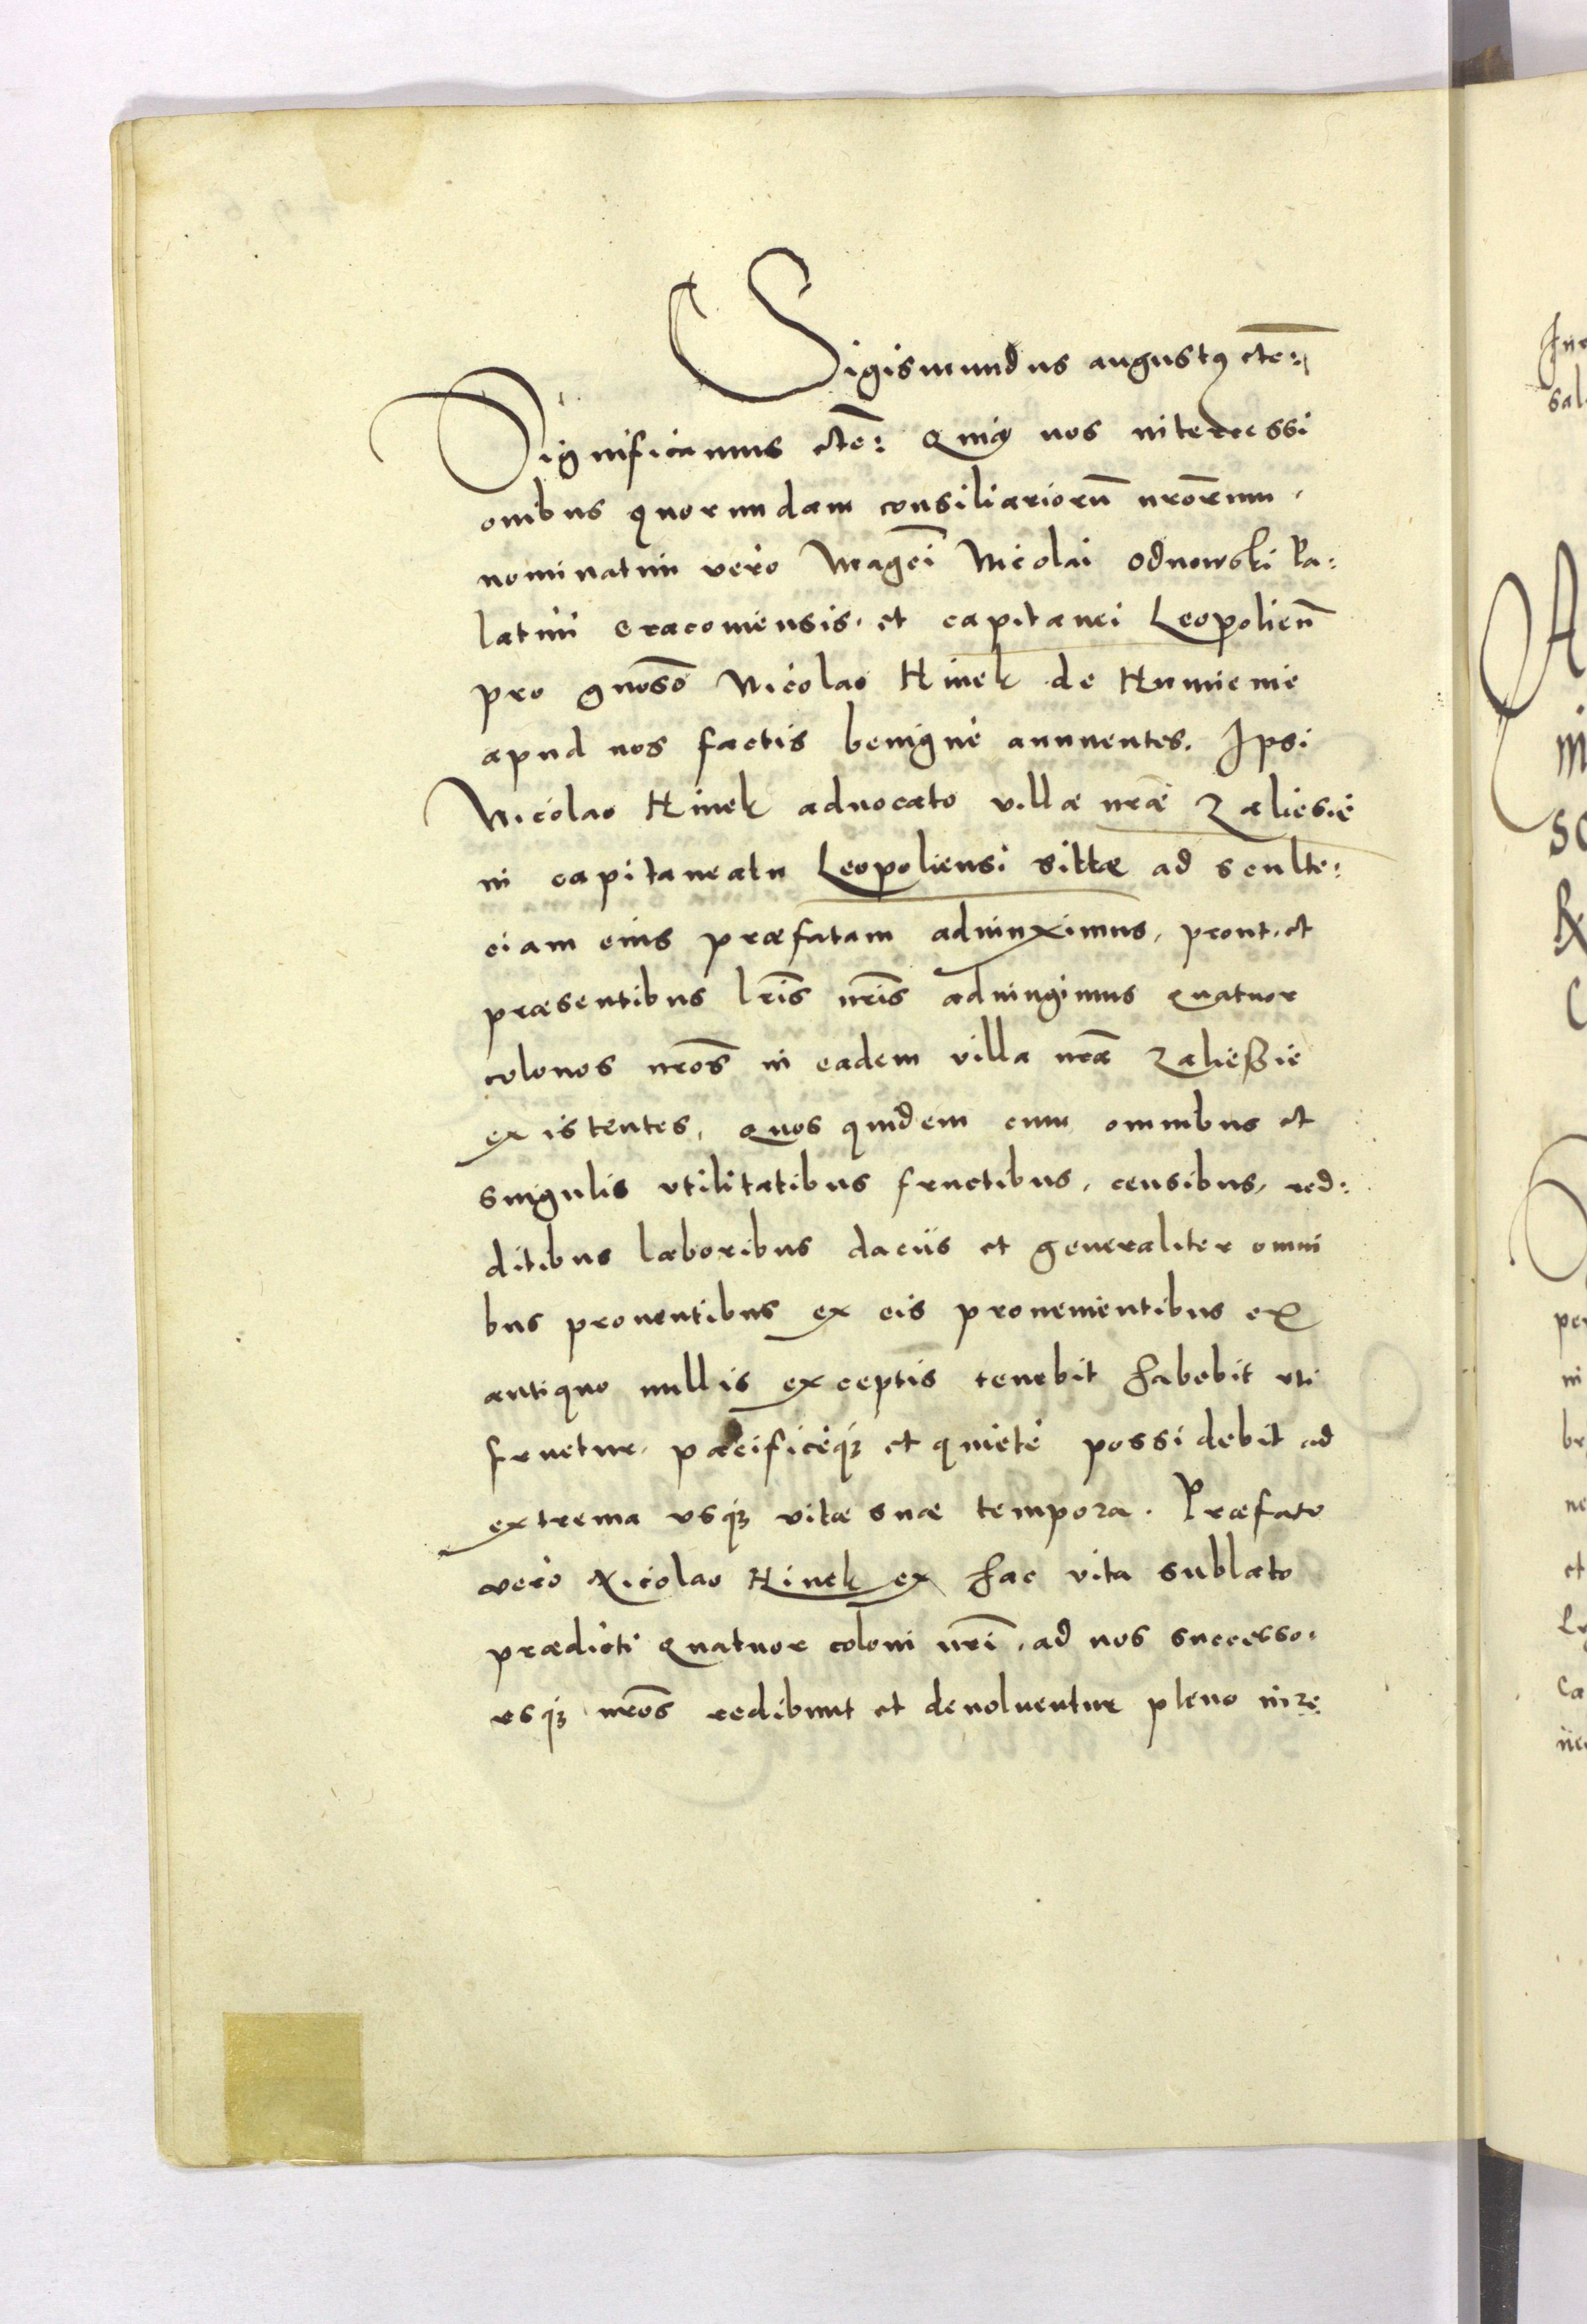 Sigismundus augustꝰ etc̄:
Significamus etc̄: Quia nos intercessi
onibus quorundam consiliariorū nrōrum,
nominatim vero Magcī Nicolai Odnowski Pa:
latini Cracoviensis. et capitanei Leopolien̄
pro gnosō Nicolao Hinek de Humienie
apud nos factis benigne annuentes. Ipsi
Nicolao Hinek advocato villæ nrāe Zaliesie
in capitaneatu Leopoliensi sittæ ad sculte:
ciam eius præfatam adiunximus, prout et
præsentibus lrīs nrīs adiungimus quatuor
colonos nrōs in eadem villa nrā Zaliessie
existentes, quos quidem cum omnibus et
singulis utilitatibus fructibus, censibus, red:
ditibus laboribus daciis et generaliter omni
bus proventibus ex eis provenientibus ex
antiquo nullis exceptis tenebit habebit uti
fruetur, pacificeqꝫ et quiete possidebit ad
extrema usqꝫ vitæ suæ tempora. Præfato
vero Nicolao Hinek ex hac vita sublato
prædicti quatuor coloni nrī, ad nos successo:
resqꝫ nrōs redibunt et devolventur pleno iure